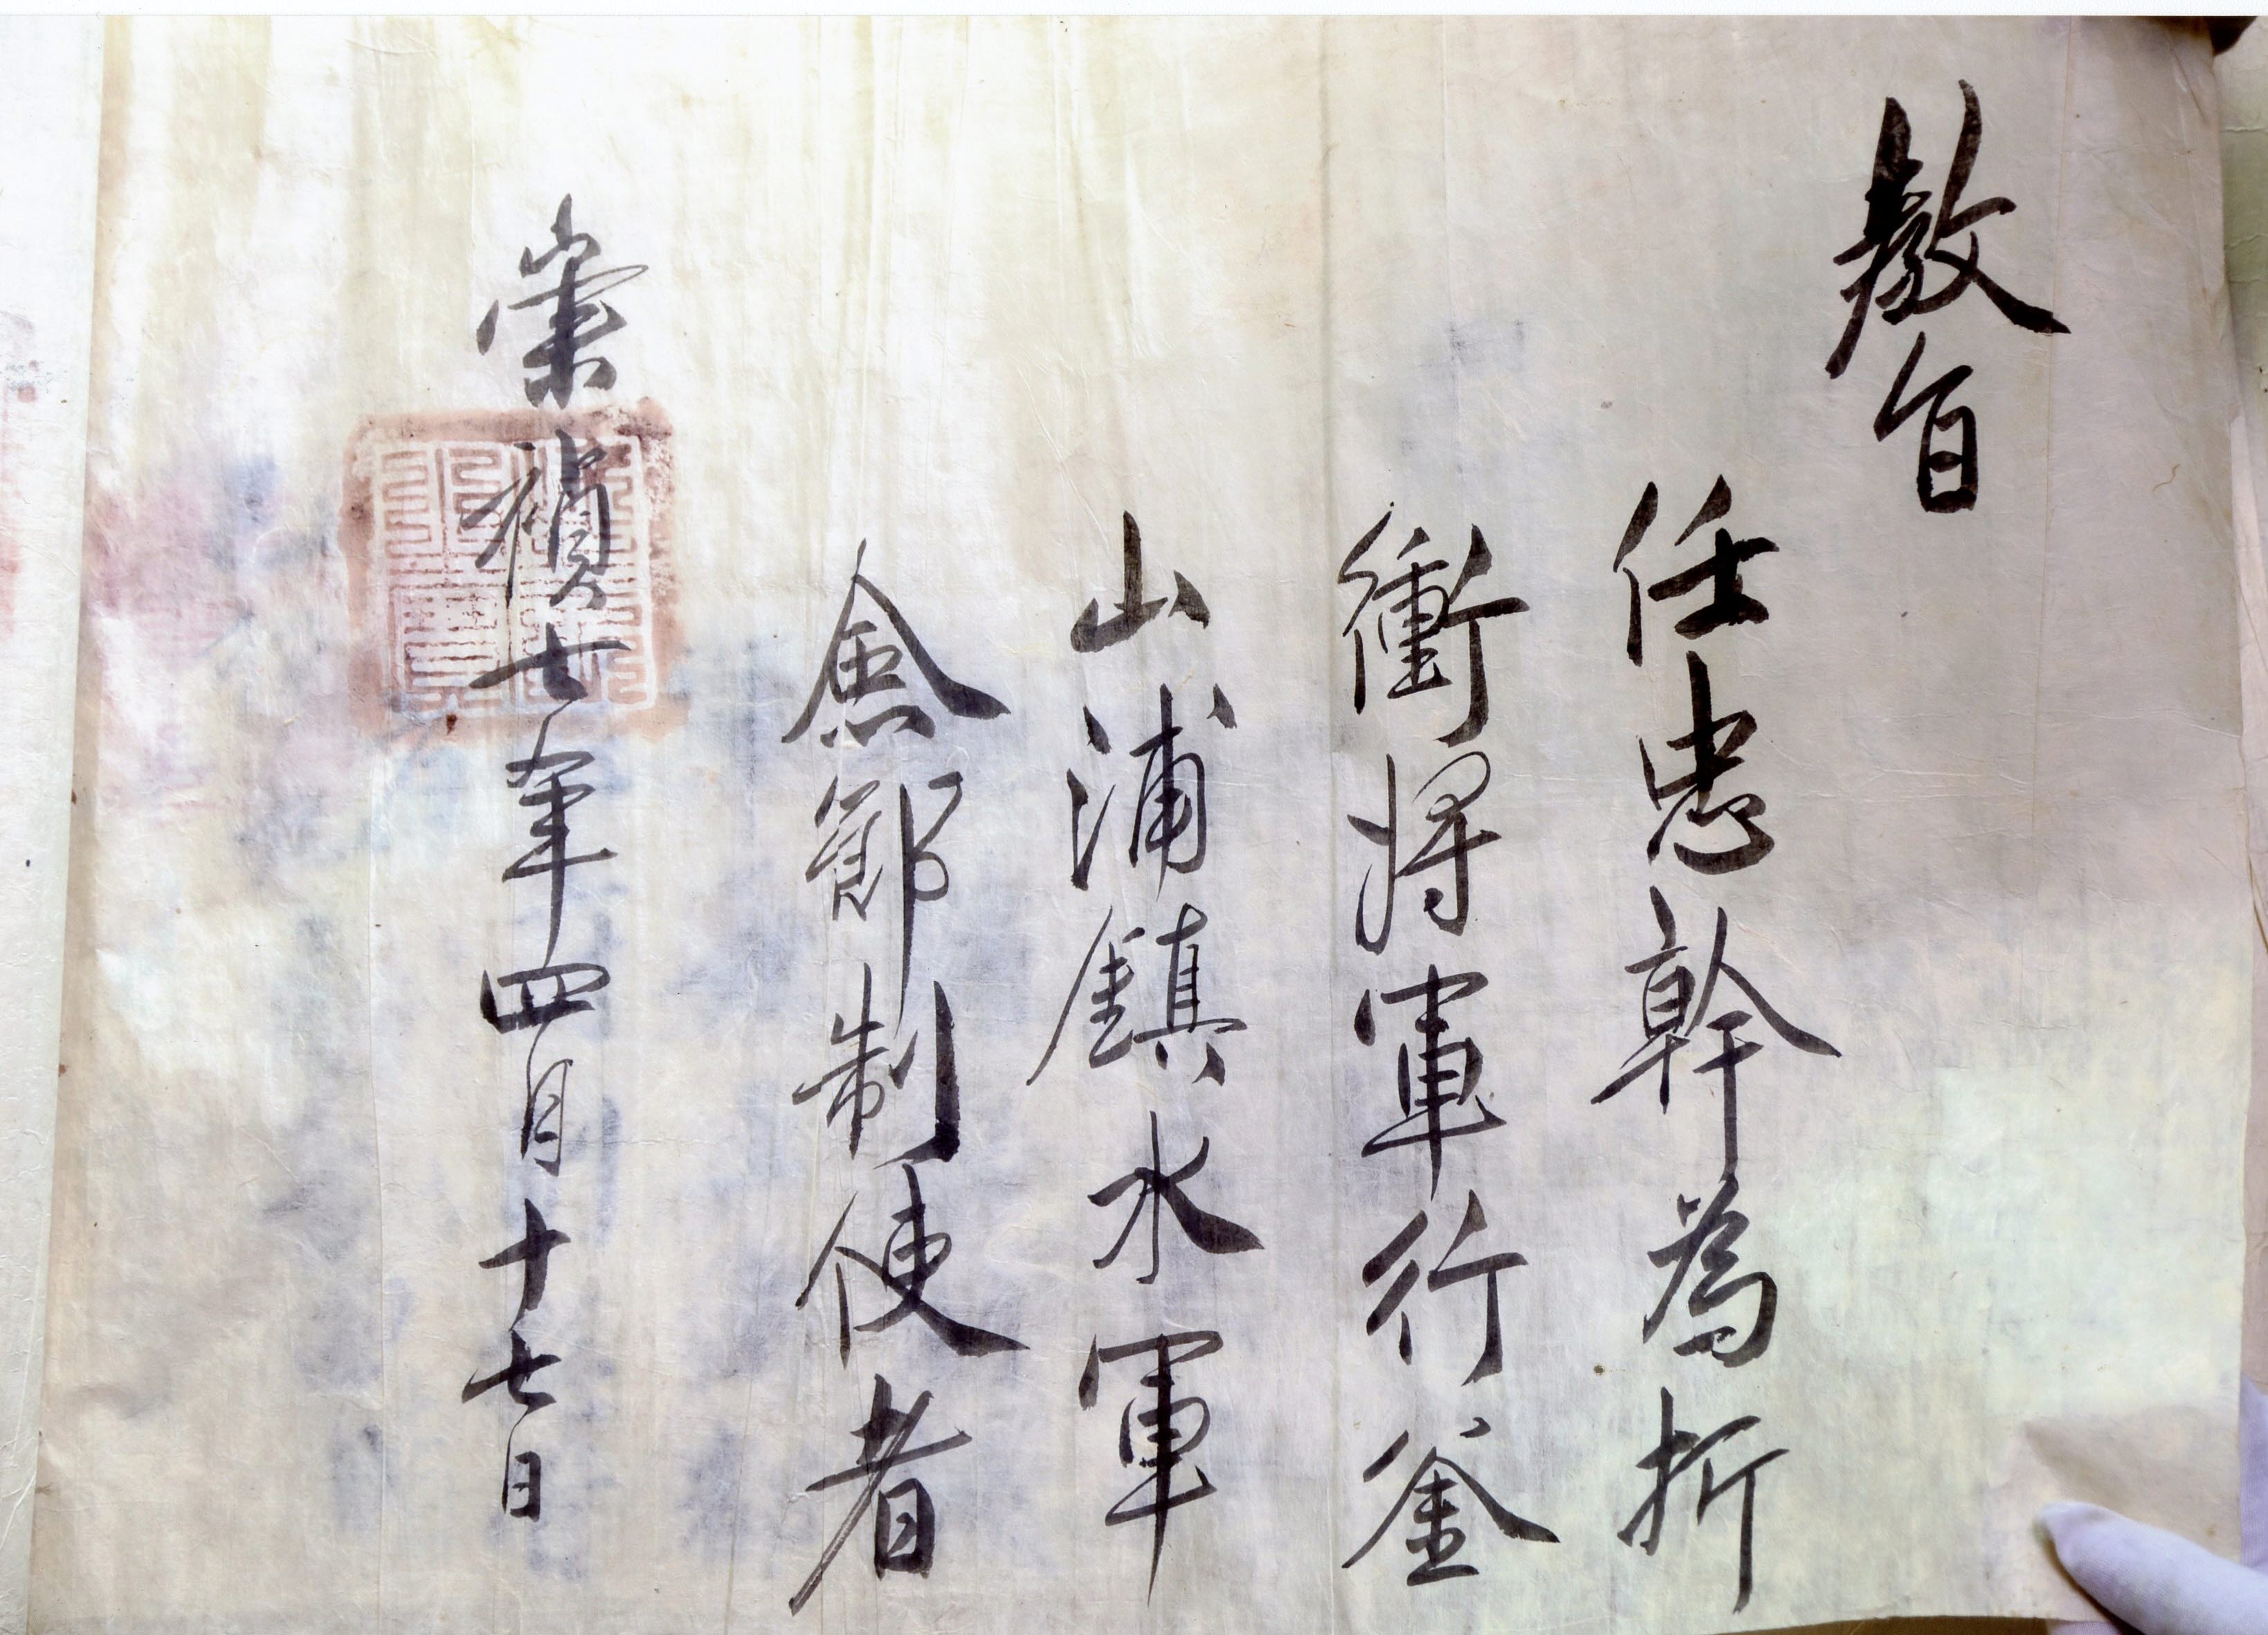 教旨
任忠幹為折
衝將軍行釜
山浦鎮水軍
僉節制使者
崇禎七年四月十七日